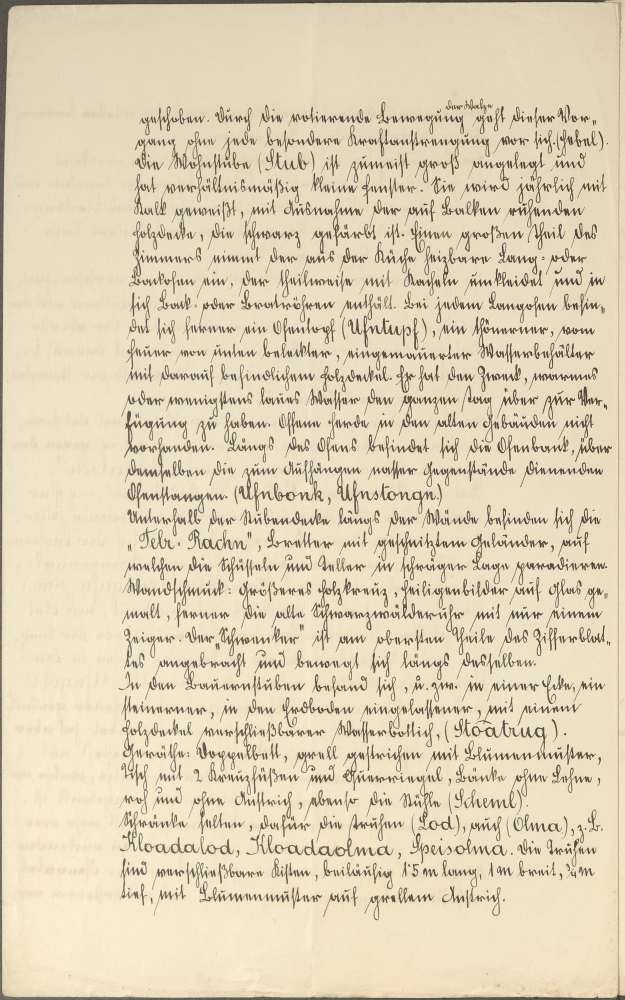 der Walze
geschoben. Durch die rotierende Bewegung geht dieser Vor-
gang ohne jede besondere Kraftanstrengung vor sich. (Hebel).
Die Wohnstube (Stub) ist zumeist groß angelegt und
hat verhältnismäßig kleine Fenster. Sie wird jährlich mit
Kalk geweißt, mit Ausnahme der auf Balken ruhenden
Holzdecke, die schwarz gefärbt ist. Einen großen Theil des
Zimmers nimmt der aus der Küche heizbare Lang- oder
Backofen ein, der theilweise mit Kacheln umkleidet und in
sich Back- oder Bratröhren enthält. Bei jedem Langofen befin-
det sich ferner ein Ofentopf (Ufntupf), ein thönerner, vom
Feuer von unten beleckter, eingemauerter Wasserbehälter
mit darauf befindlichem Holzdeckel. Er hat den Zweck, warmes
oder wenigstens laues Wasser den ganzen Tag über zur Ver-
fügung zu haben. Offene Herde in den alten Gebäuden nicht
vorhanden. Längs des Ofens befindet sich die Ofenbank, über
demselben die zum Aufhängen nasser Gegenstände dienenden
Ofenstangen. (Ufnbonk, Ufnstonge.)
Unterhalb der Stubendecke längs der Wände befinden sich die
"Telr-Rachn", Bretter mit geschnitztem Geländer, auf
welchen die Schüsseln und Teller in schräger Lage paradieren.
Wandschmuck: Größeres Holzkreuz, Heiligenbilder auf Glas ge-
malt, ferner die alte Schwarzwälderuhr mit nur einem
Zeiger. Der "Schwenker" ist am obersten Theile des Zifferblat-
tes angebracht und bewegt sich längs desselben.
In den Bauernstuben befand sich, u. zw. in einer Ecke, ein
steinerner, in den Erdboden eingelassener, mit einem
Holzdeckel verschließbarer Wasserbottich, (Stoatrug).
Geräthe: Doppelbett, grell gestrichen mit Blumenmuster,
Tisch mit 2 Kreuzfüßen und Querriegel, Bänke ohne Lehne,
roh und ohne Anstrich, ebenso die Stühle (Scheml).
Schränke selten, dafür die Truhen (Lod), auch (Olma), z. B.
Kloadalod, Kloadaolma, Speisolma. Die Truhen
sind verschließbare Kisten, beiläufig 1·5 m lang, 1 m breit, ¾ m
tief, mit Blumenmuster auf grellem Anstrich.